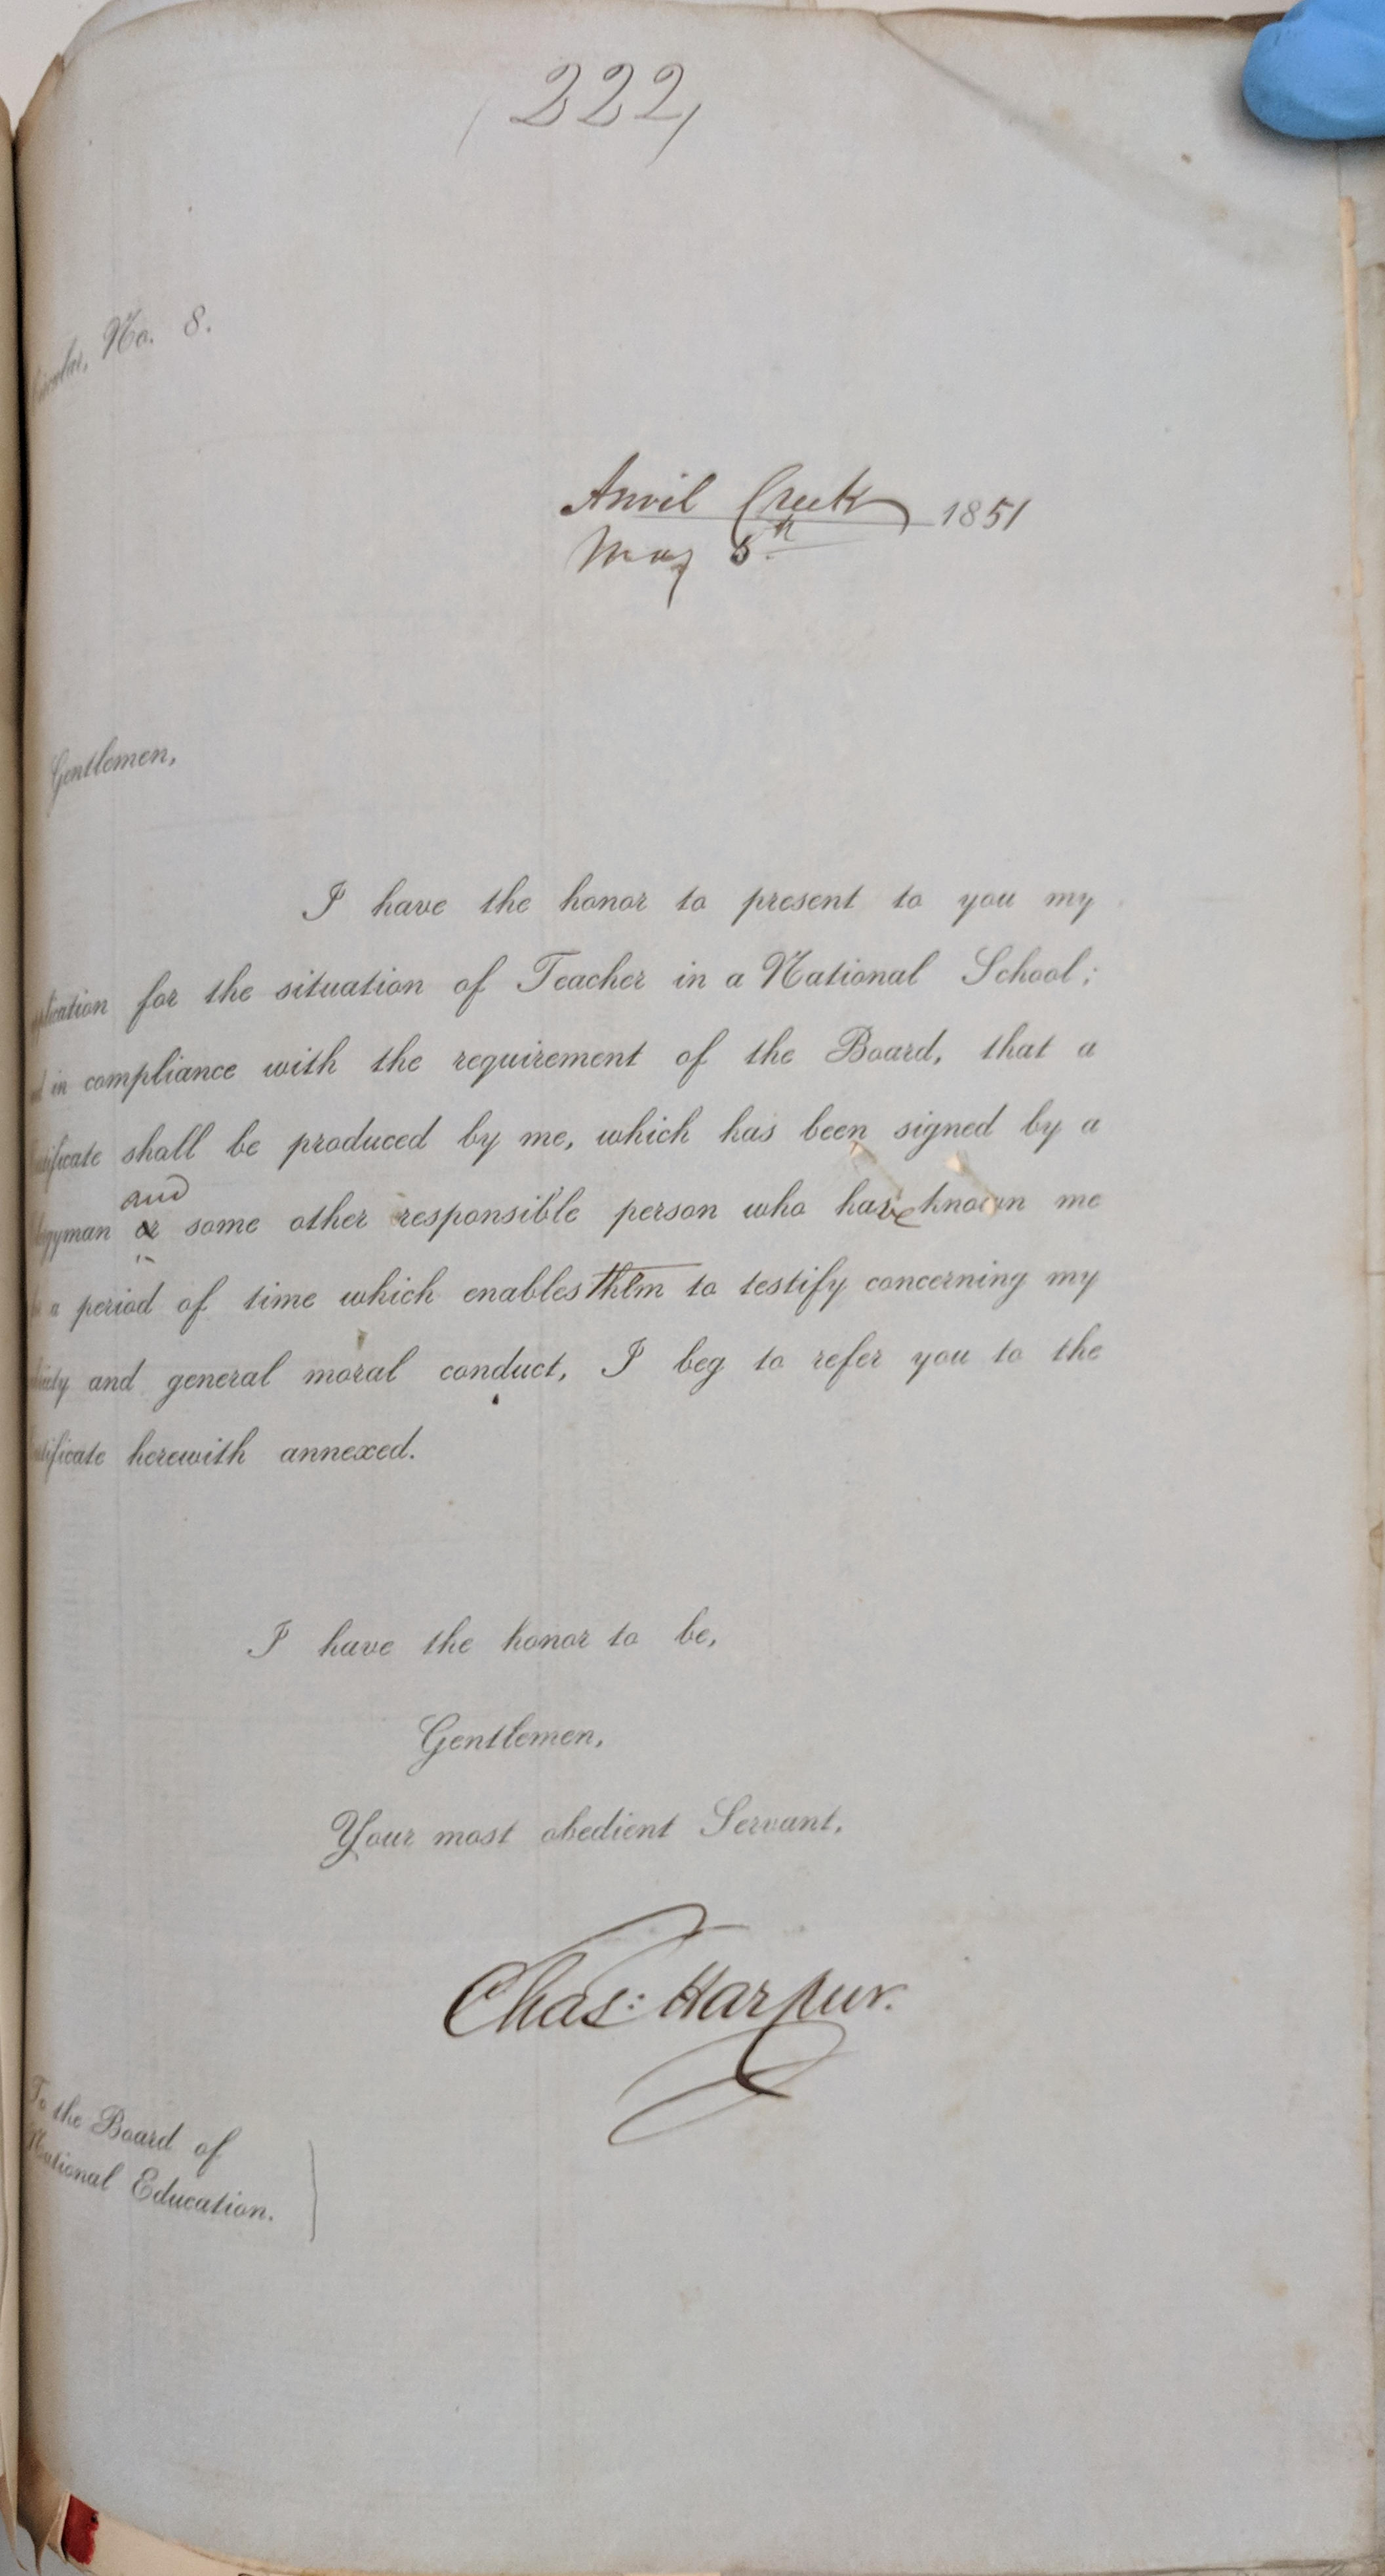 222
No. 8.
Anvil Creek 1851
May 5th
Gentlemen,
I have the honor to present to you my
plication for the situation of Teacher in a National School;
in compliance with the requirement of the Board, that a
tificate shall be produced by me, which has been signed by a
and
gyman or some other responsible person who have known me
a period of time which enables them to testify concerning my
and general moral conduct, I beg to refer you to the
tificate herewith annexed.
I have the honor to be,
Gentlemen,
Your most obedient Servant,
Chas: Harpur.
To the Board of
National Education.